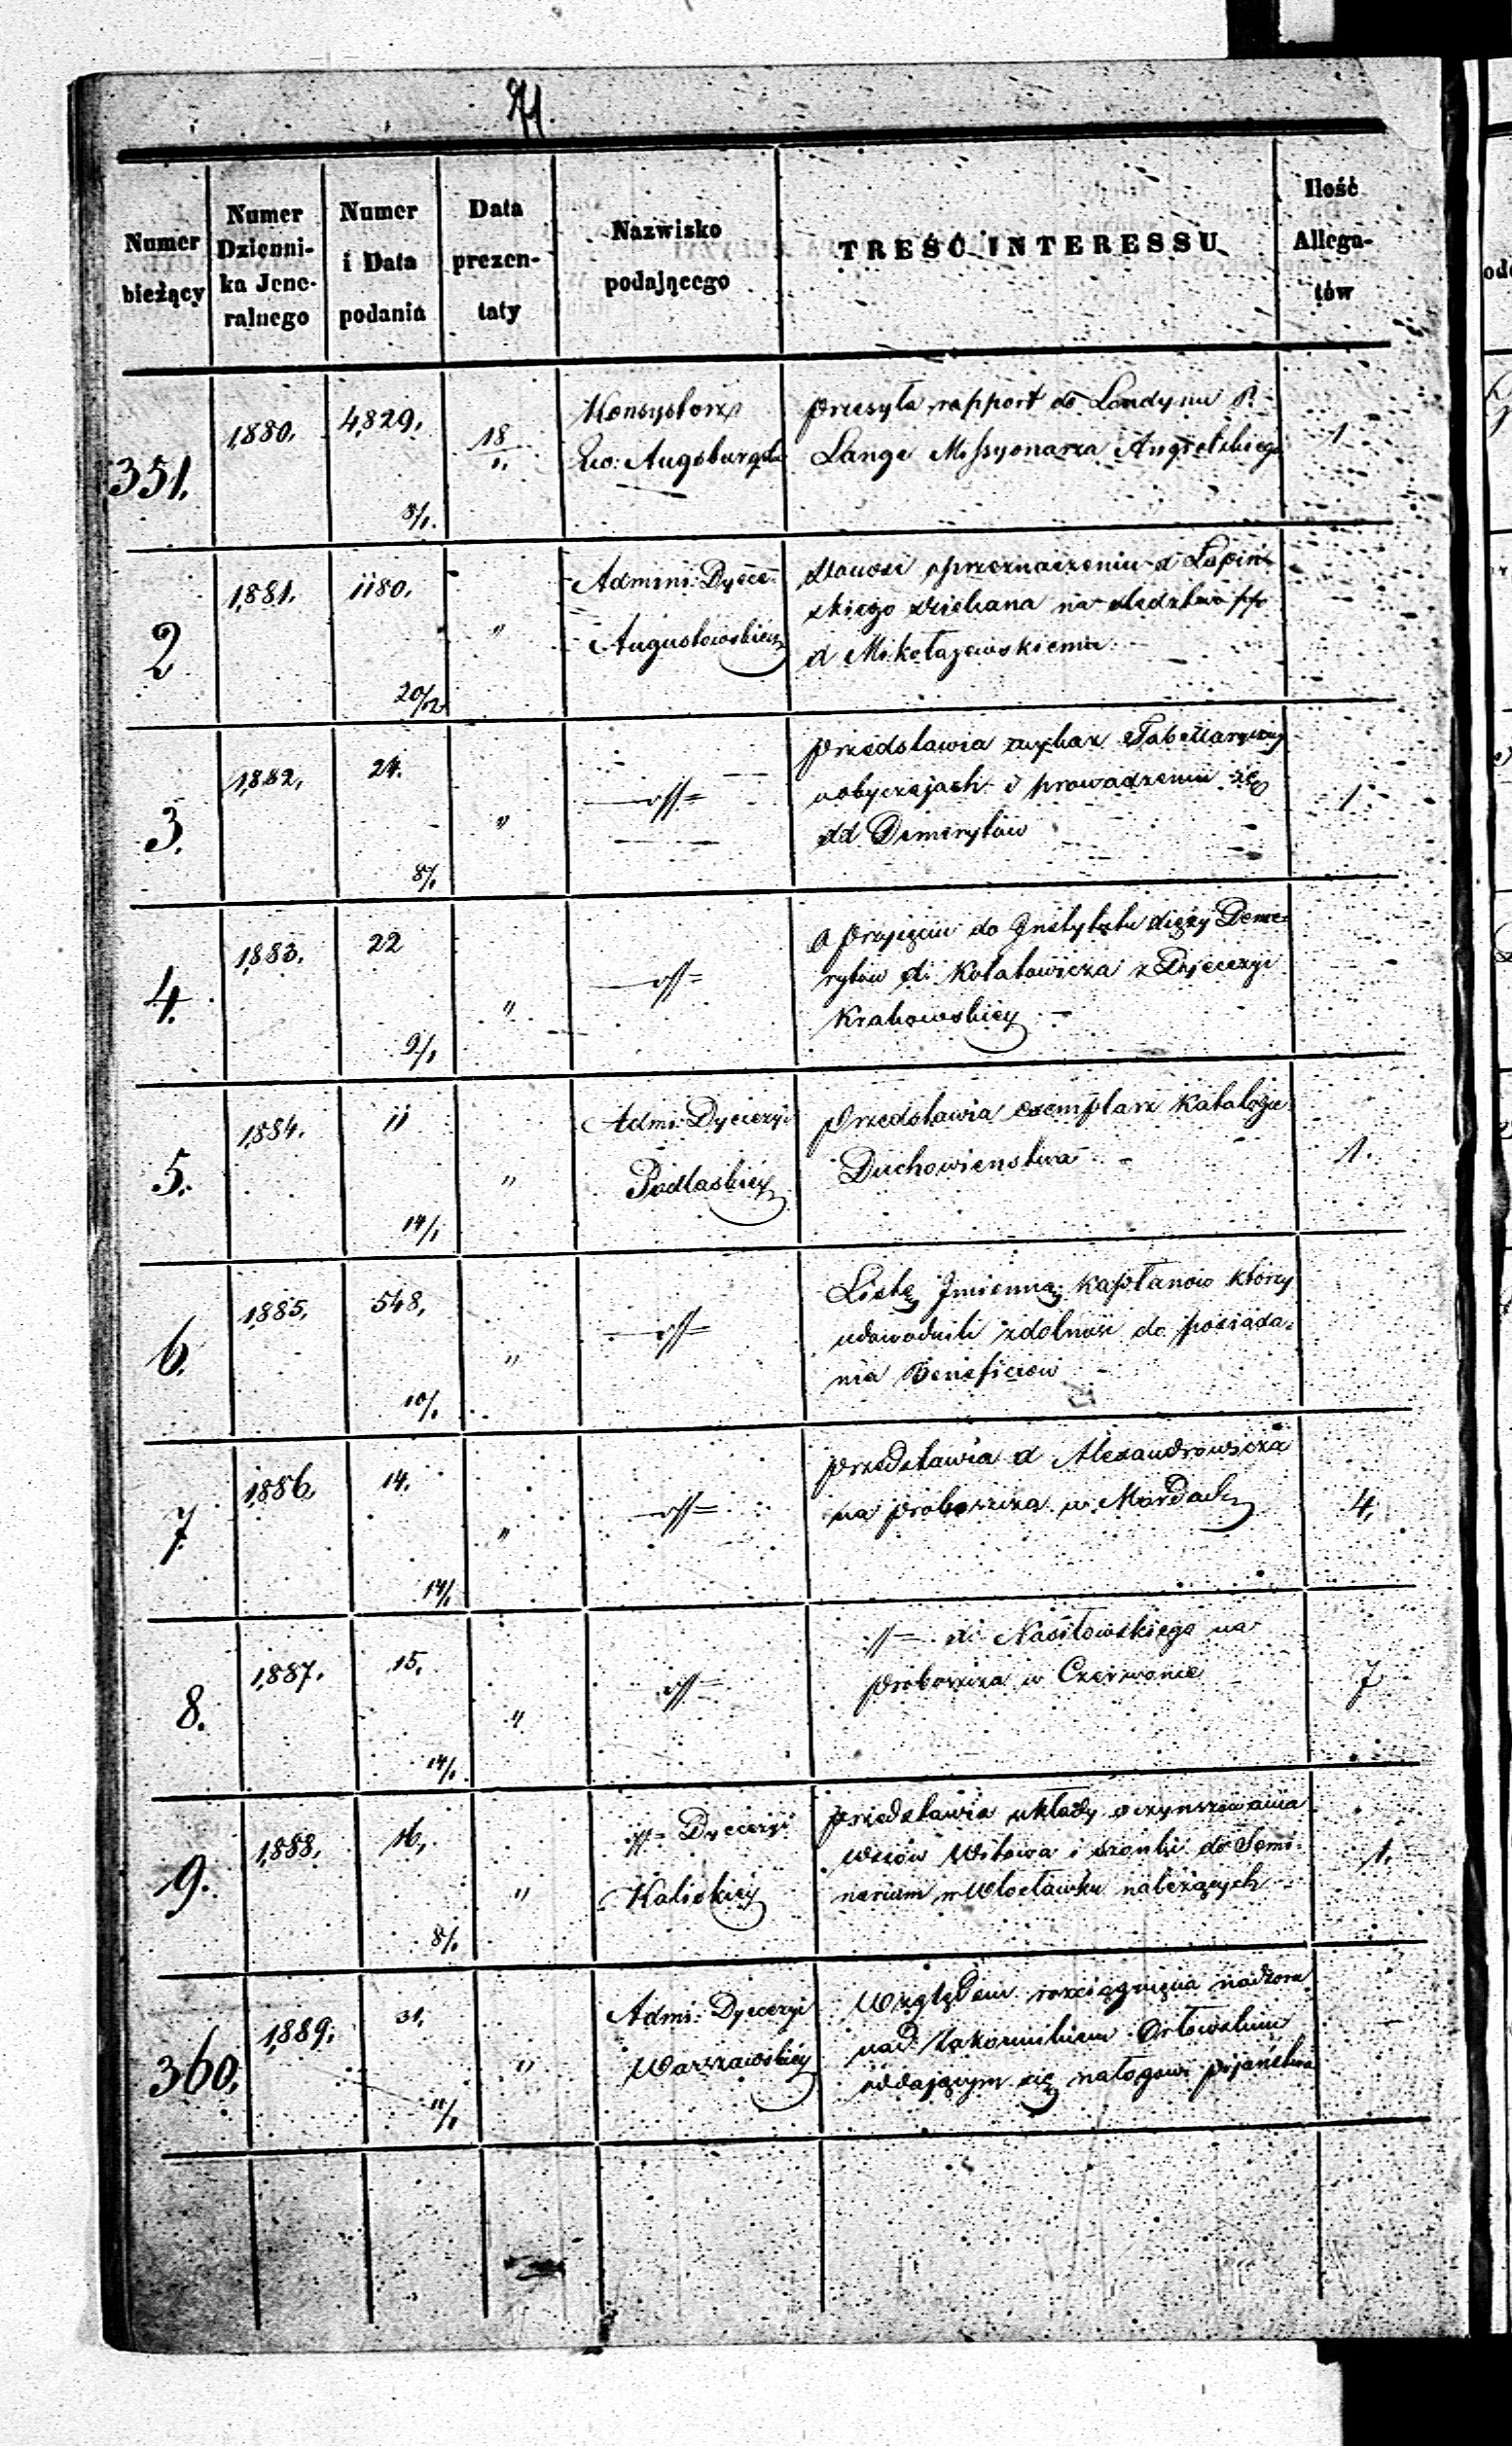 71.
Numer bieżący | Numer Dzienni- ka Jene- ralnego | Numer i Data podania | Data prezen- taty | Nazwisko podającego | TREŚĆ INTERESSU | Ilość Allega- tów
351. | 1,880. | 4,829. 8/1. | 18/1. | Konsystorz | przesyła rapport do Londynu P.
Ew: Augsburgski | Lange Missyonarza Angielskiego | 1
2 | 1,881. | 1180. 20/12 | " | Admini: Dyece: | donosi o przeznaczeniu X Łapiń-
Augustowskiey | skiego Dziekana na śledztwo p/o
X Mikołajewskiemu
3. | 1,882, | 24. 8/1. | " | —//= | przedstawia wykaz Tabellaryczny
o obyczajach i prowadzeniu się | 1
XX Demerytów
4. | 1,883. | 22 9/1 | " | —//= | o przyjęciu do Instytutu Xięży Deme-
rytów X. Kołatowicza z Dyecezyi
Krakowskiey
5. | 1,884. | 11 14/1 | " | Admi: Dyecezyi | przedstawia exemplarz Katalogu
Podlaskiey | Duchowieństwa | 1.
6. | 1,885. | 548, 10/1. | " | —//= | Listę Imienną Kapłanów którzy
udowodnili zdolność do posiada-
nia Beneficiów
7 | 1,886. | 14. 14/1. | " | —//= | przedstawia X Alexandrowicza
na proboszcza w Mordach | 4.
8. | 1,887. | 15. 14/1. | " | —//= | —//= X. Nasiłowskiego na
proboszcza w Czerwonce | 7
9. | 1,888. | 16, 8/1. | " | —//= Dyecezyi | przedstawia układy oczynszowania
Kaliskiey | wsiów Witowa i do Semi-
narium w Włocławku należących | 1.
360. | 1,889. | 31. 11/1 | " | Admi: Dyecezyi | Względem rozciągnięcia nadzoru
Warszawskiey | nad Zakonnikiem Orłowskim
oddającym się nałogowi pijaństwa